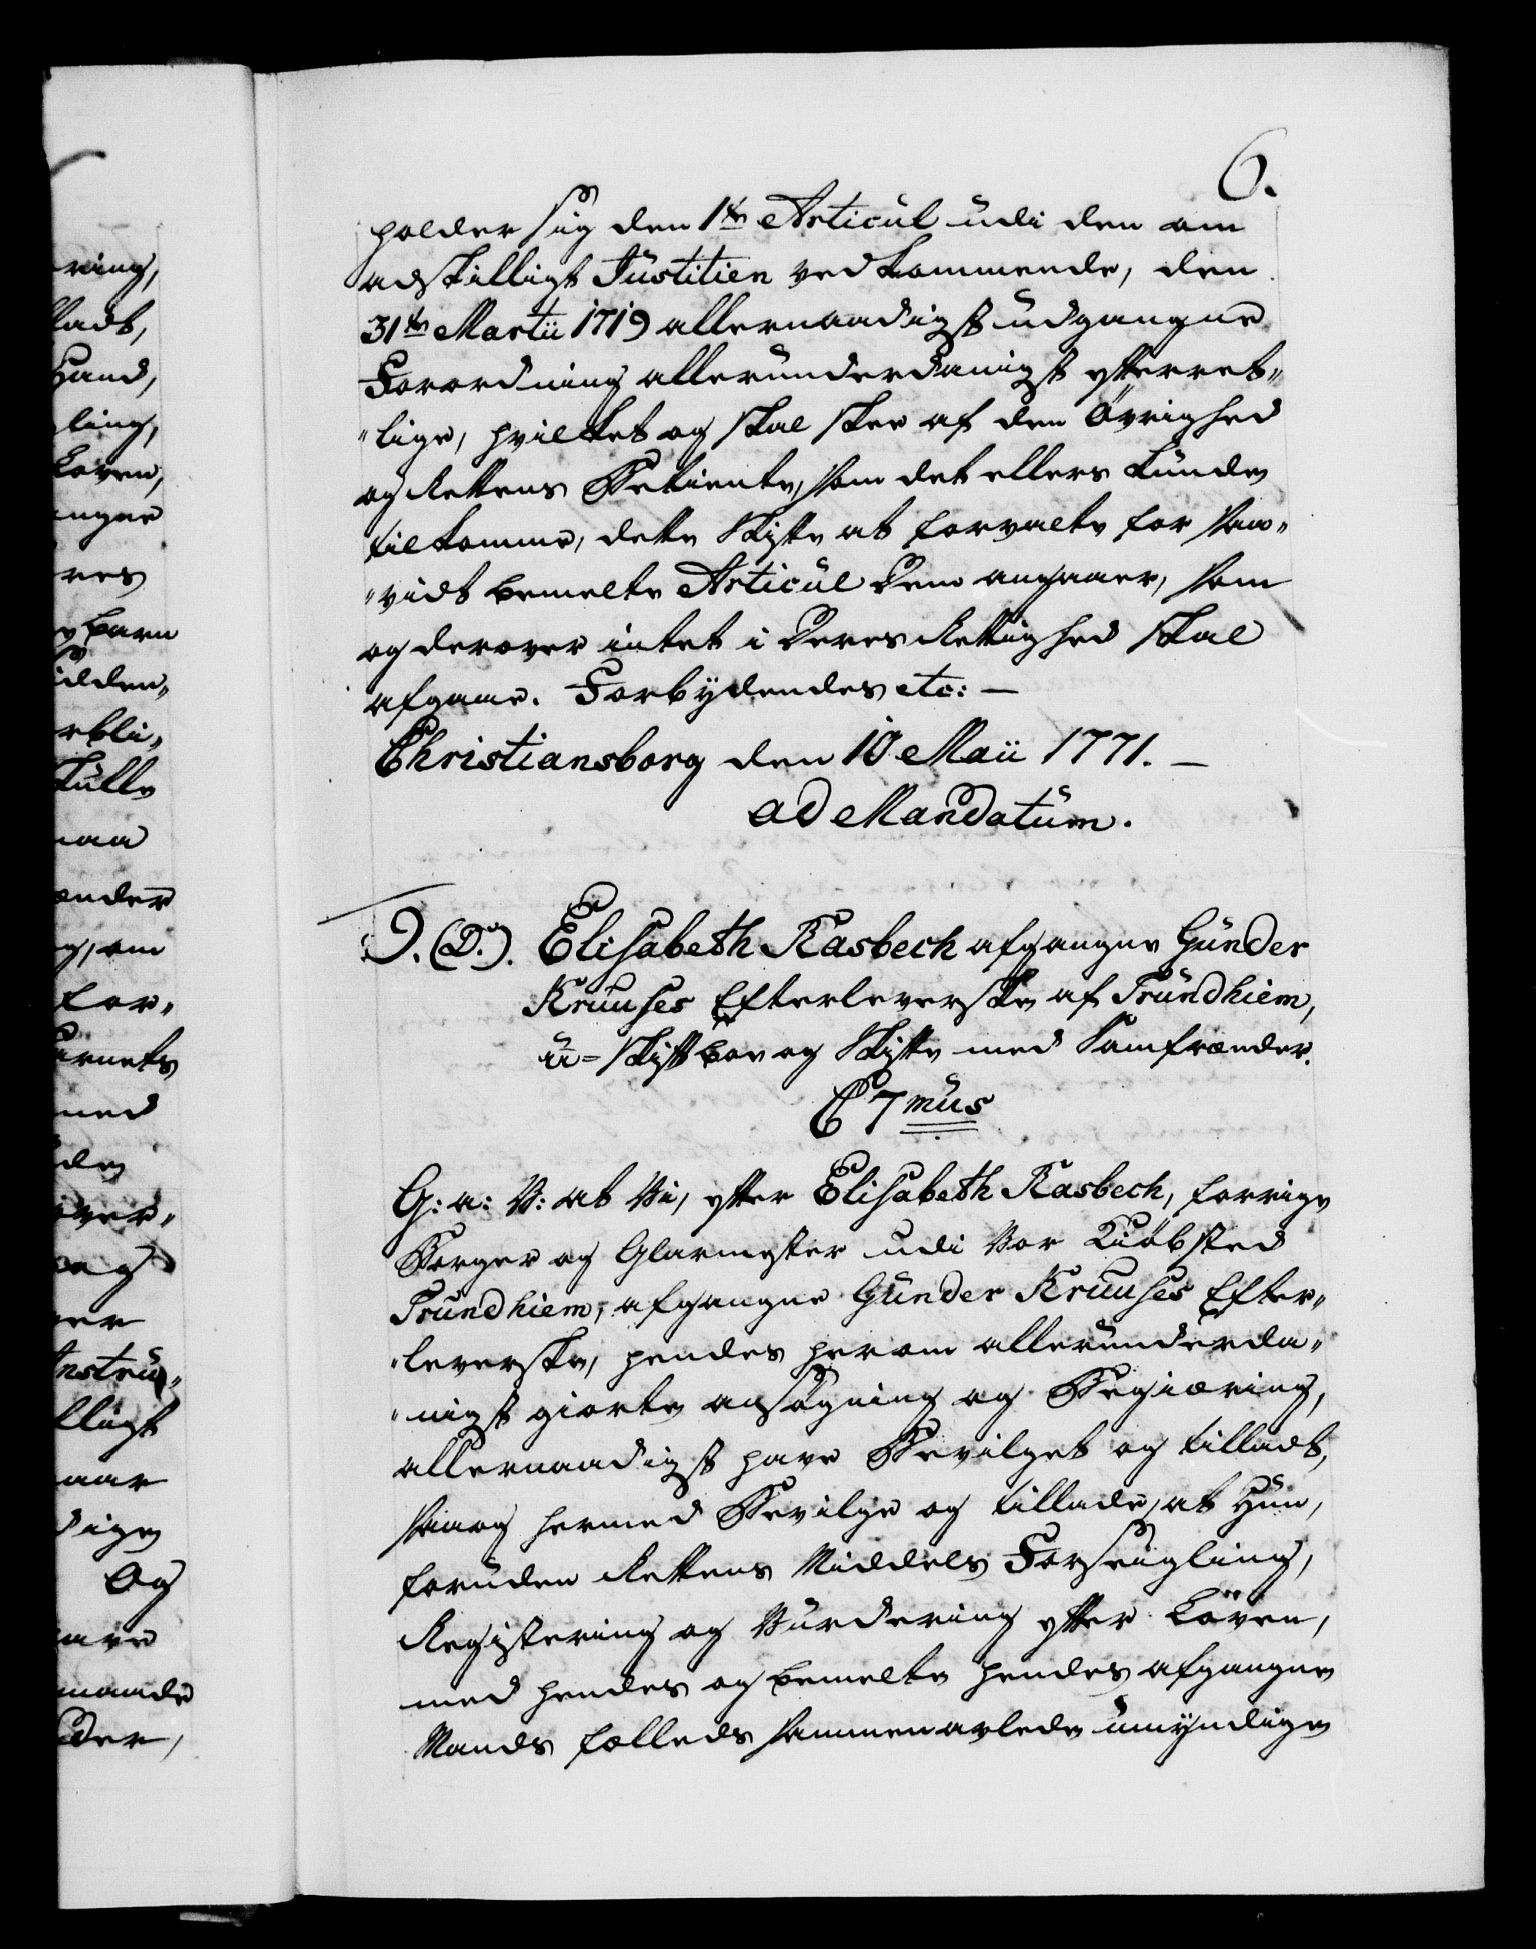 6.
holder sig den 1ste Articul udi den om
adskilligt Justitien vedkommende, den
31ten Martii 1719 allernaadigst udgangne
Forordning allerunderdanigst efterret„
„lige, hvilket og skal skee af den Övrighed
og Rettens Betiente, som det ellers kunde
tilkomme, dette Skifte at forvalte for saa„
„vidt bemelte Articul Dem angaaer, som
og derover intet i Deres Rettighed skal
afgaae. Forbydendes etc: —
Christiansborg den 10 Maii 1771. —
ad Mandatum.
9. (D.). Elisabeth Rasbech afgangne Gunder
Kruuses Efterleverske af Trundhiem,
u=skiftboe og Skifte med Samfrænder.
C 7mus
G: a: V: at Vi, efter Elisabeth Rasbech, forrige
Borger og Glarmester udi Vor Kiöbsted
Trundhiem, afgangne Gunder Kruuses Efter„
„leverske, hendes herom allerunderda„
„nigst giorte ansögning og Begiæring,
allernaadigst have Bevilget og tilladt,
saa og hermed Bevilge og tillade, at Hun,
foruden Rettens Middels Forseigling,
Registering og Vurdering efter Loven,
med hendes og bemelte hendes afgangne
Mands fælleds sammenavlede umyndige